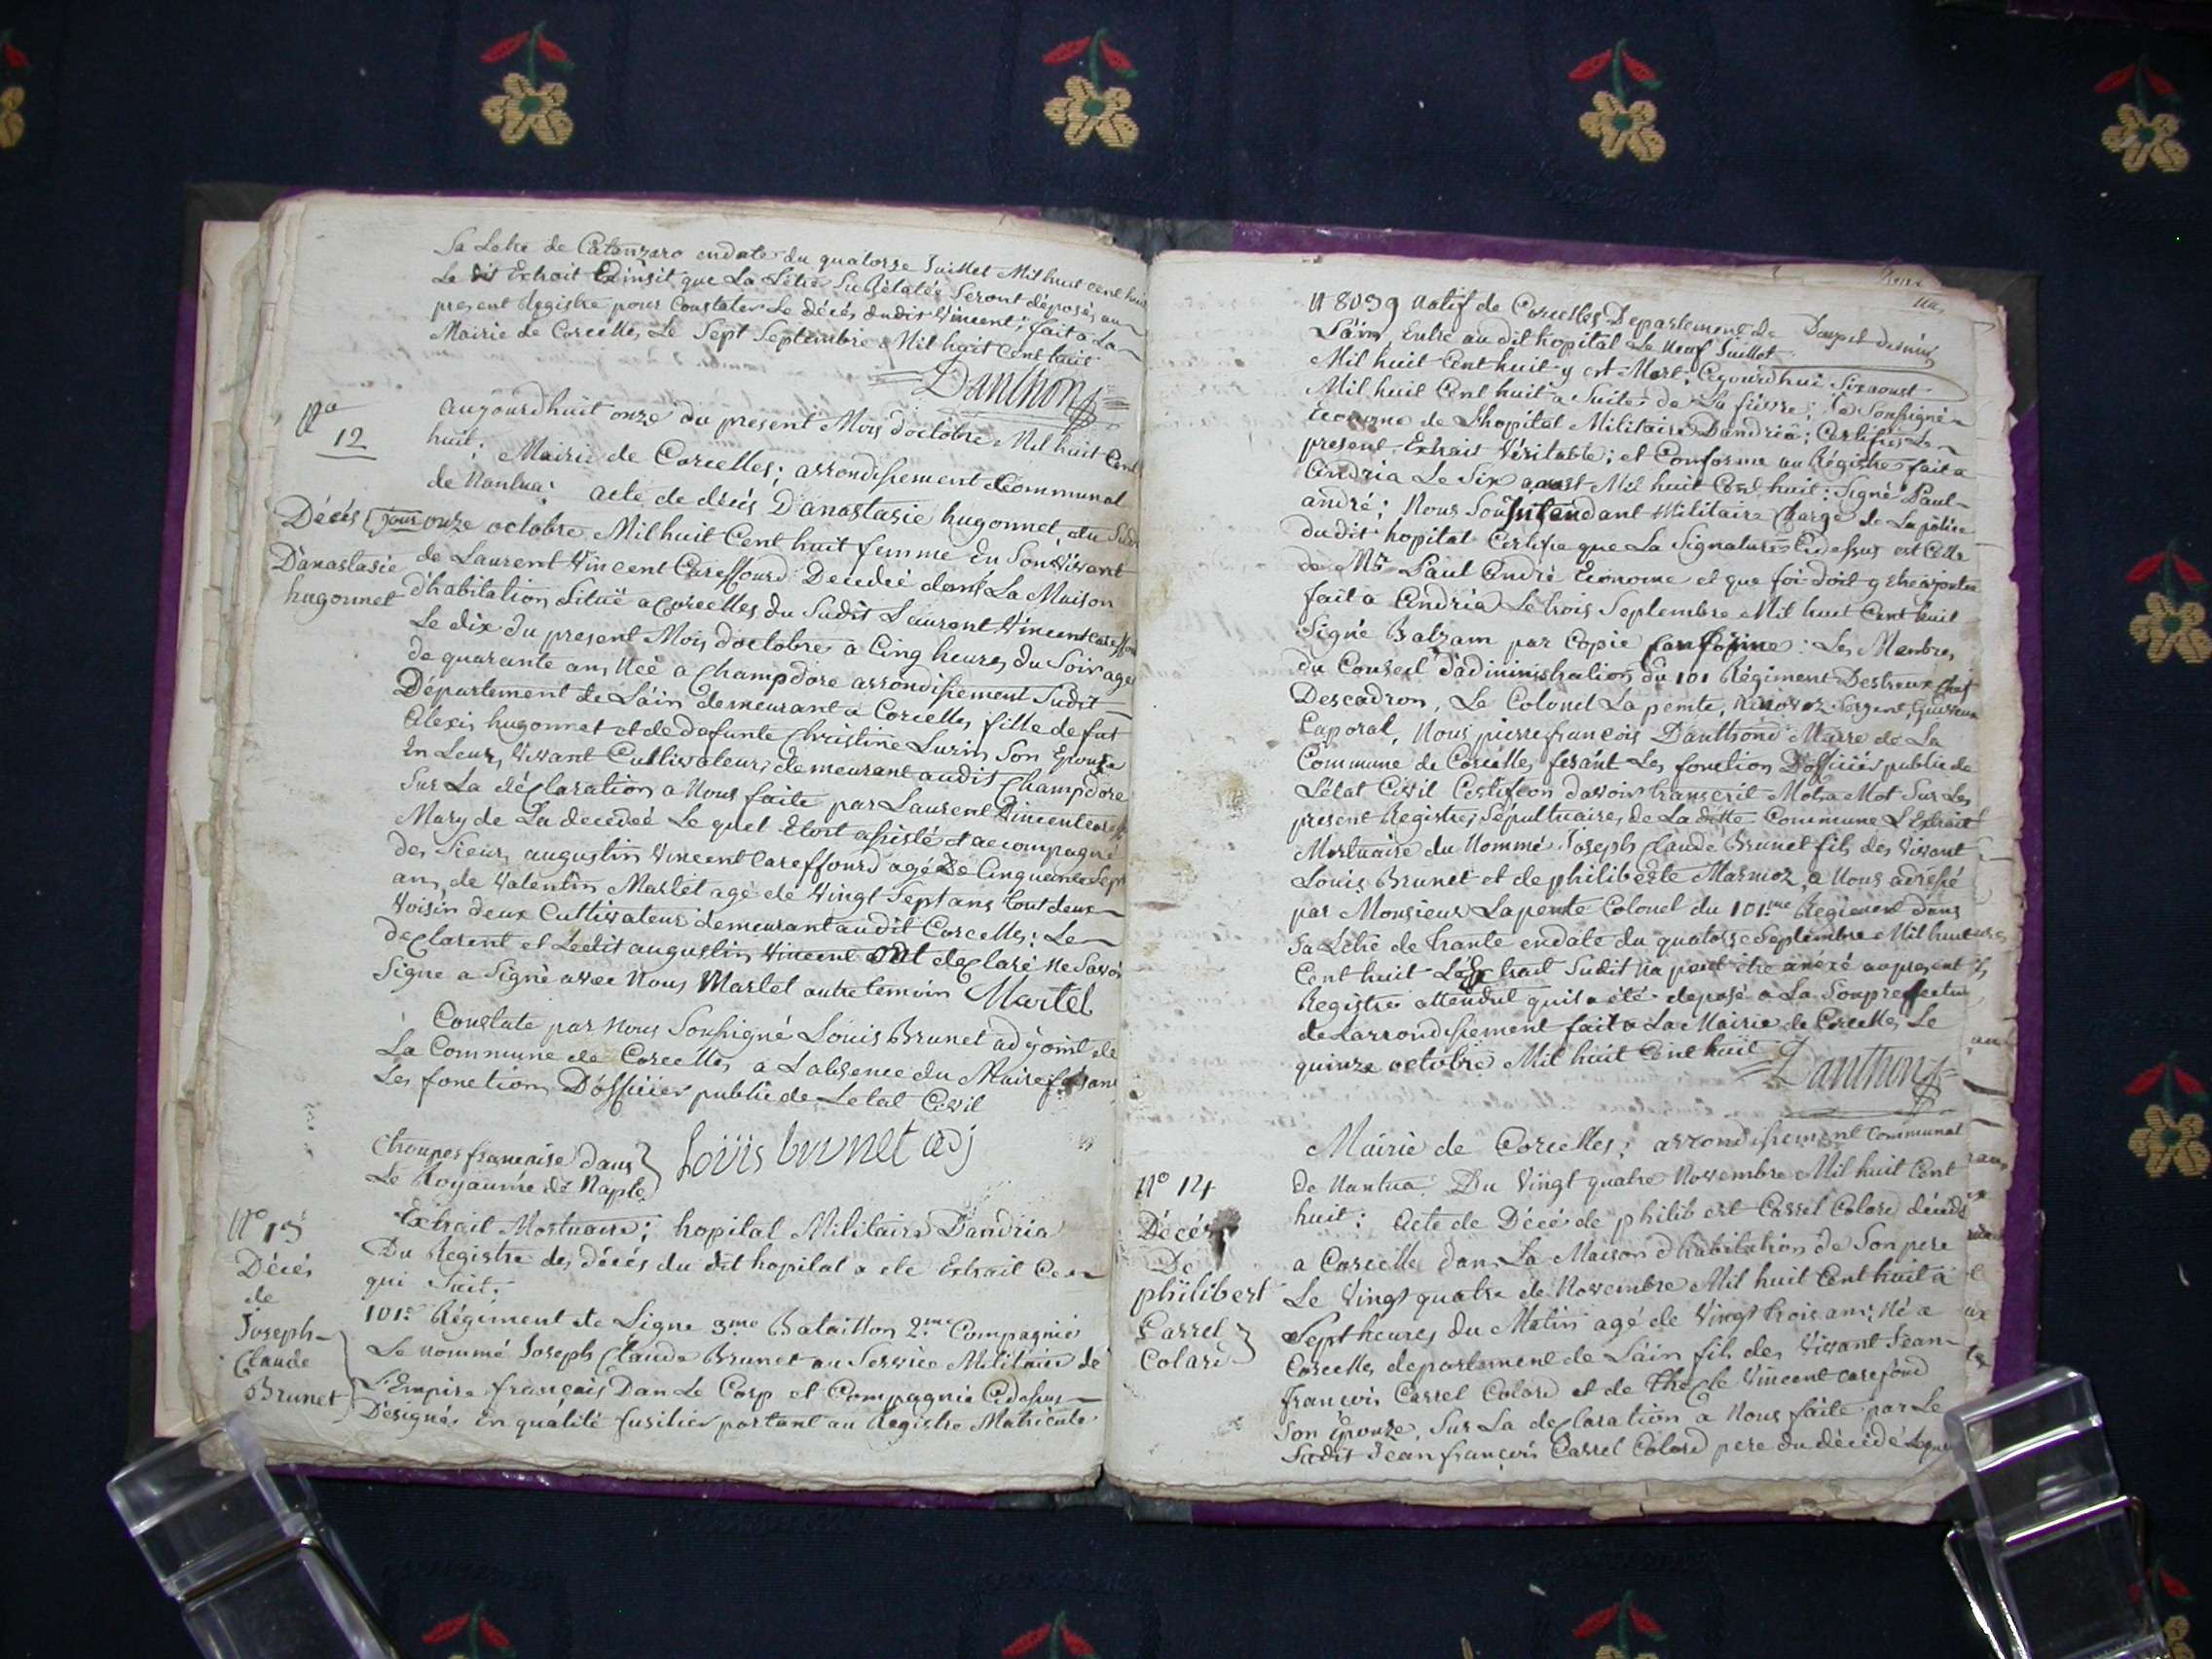 Sa Letre de Catanzaro endate du quatorse Juillet Mil huit cent huit
Le dit Extrait Ainsit que La Letre Susdetatée Seront déposés au
present Registre pour Constater Le décés dudit Vincent; fait a La
Mairie de Corcelles, Le Sept Septembre Mil huit Cent huit
Danthon
No
12
aujourdhuit onze du present Mois doctobre Mil huit Cent
huit: Mairie de Corcelles; arrondissement Communal
de Nantua: acte de décés D'anastasie hugonnet, du Sudit
Décés
D'anastasie
hugonnet
jour onze octobre Mil huit Cent huit femme En Son Vivant
de Laurent Vincent Careffourd Decedeé dans La Maison
d'habitation Situë a Corcelles du Sudit Laurent Vincent careffour
Le dix du present Mois doctobre a Cinq heures du Soir agé
de quarante ans Neé a Champdore arrondissement Sudit
Département de L'ain demeurant a Corcelles fille de fut
Alexis hugonnet et de defunte Christine Luzin Son Epouse
En Leurs Vivant Cultivateurs demeurant audit Champdore
Sur La déclaration a Nous faite par Laurent Vincent
Mary de La decedeé Le quel Etoit assisté et accompagné
des Sieurs augustin Vincent Careffourd agé De Cinquante Sept
ans, de Valentin Martel agé de Vingt Sept ans tout deux
Voisin deux Cultivateurs demeurant audit Corcelles: Le
declarent et Ledit augustin Vincent ont declaré Ne Savoir
Signe a Signé avec Nous Martel autre temoin Martel
Constate par Nous Soussigné Louis Brunet adjoint de
La Commune de Corcelles a L'absence du Maire fesant
Les fonctions D'officier public de Letat Civil
Louis brunet adj
troupes francaise dans
Le Royaume de Naples
No 13
Décés
de
Joseph
Claude
Brunet
Extrait Mortuaire; hopital Militaire Dandria
Du Registre des décés du dit hopital a ete Extrait Ce
qui Suit:
101e Régiment de Ligne 3me Bataillon 2me Compagnie
Le nommé Joseph Claude Brunet au Service Militaire de
L'Empire français Dan Le Corp et Compagnie Cidessus
Désignés En quálité fusilier portant au Registre Matricule
N 8039 Natif de Corcelles Departement De
L'ain, Entré au dit hopital Le Neuf Juillet
Mil huit Cent huit y est Mort, Cejourdhui Six aoust
Mil huit Cent huit a Suites de La fièvre; Le Soussigné
Econome de Lhopital Militaire Dandria; Certifie Le
present Extrait Véritable; et Conforme au Régistre fait a
Andria Le Six aoust Mil huit Cent huit: Signé Paul
andré; Nous Sousintendant Militaire Chargé de La police
dudit hopital Certifie que La Signature Cidessus est Celle
de Mr Paul André Econome et que foi doit y etre ajoutée
fait a Andria Le trois Septembre Mil huit Cent huit
Signé Balzam par Copie Conforme: Les Membres
du Conseil d'administration du 101 Régiment Destreux Chef
Descadron, Le Colonel La pente, Sergent,
Caporal, Nous pierre françois Danthond Maire de La
Commune de Corcelles fesánt Les fonction D'officier public de
L'état Civil Certifion d'avoir transcrit Mot a Mot Sur Les
present Registres Sépultuaires de La ditte Commune L'Extrait
Mortuaire du Nommé Joseph Claude Brunet fils des Vivant
Louis Brunet et de philiberte Marmoz, a Nous adressé
par Monsieur Lapente Colonel du 101me Regiment dans
Sa Letre de trante endate du quatorse Septembre Mil huit
Cent huit L'Extrait Sudit Na peut être anéxé au present
Registre attendut quil a été deposé a La Soupreffecture
de Larrondissement fait a La Mairie de Corcelles Le
quinze octobre Mil huit Cent huit Danthon
Mairie de Corcelles; arrondissement Communal
No 14
Décés
De
philibert
Carrel
Colard
de Nantua: Du Vingt quatre Novembre Mil huit Cent
huit: Acte de Décé de philibert Carrel Colard décédé
a Corcelle dans La Maison d'habitation de Son pere
Le Vingt quatre de Novembre Mil huit Cent huit a
Sept heures du Matin agé de Vingt trois ans; Né a
Corcelles departement de L'ain fils des Vivant Jean
françois Carrel Colard et de Thecle Vincent carefond
Son Epouze, Sur La declaration a Nous faite par Le
Sudit Jean françois Carrel Colard pere du décédé Lequel